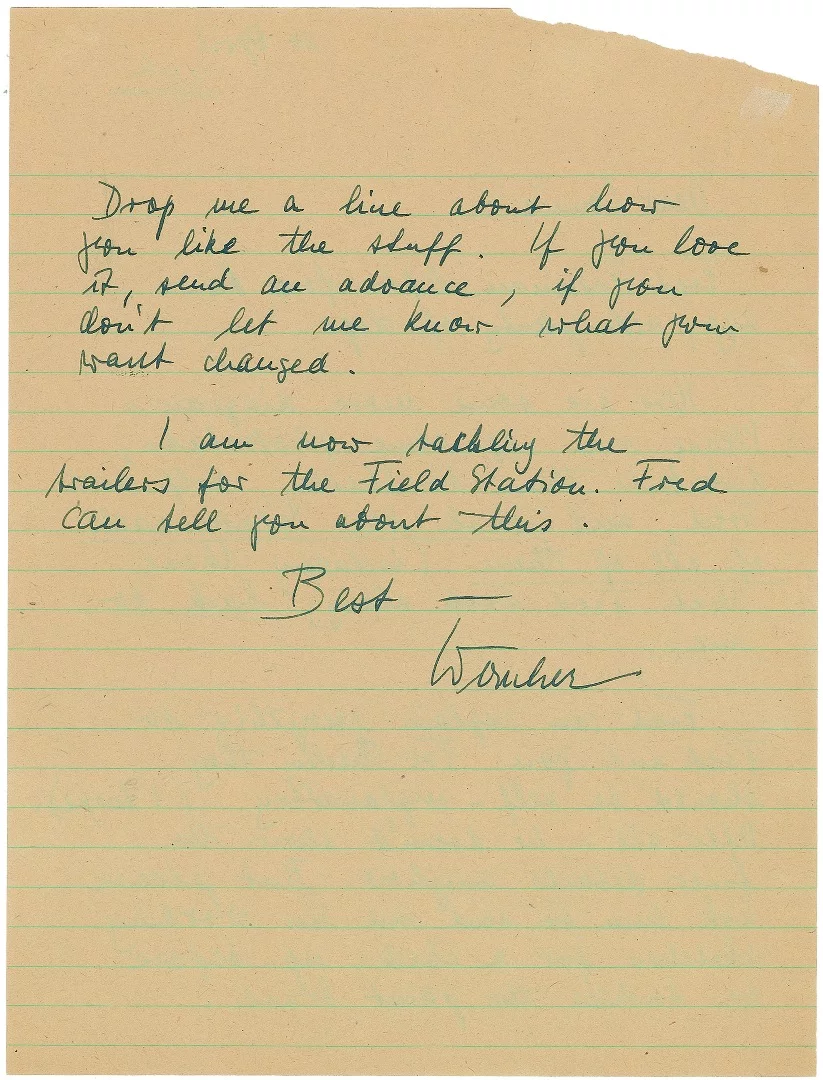 Drop me a line about how
you like the stuff. If you love
it, send an advance, if you
don't let me know what you
want changed.
I am now tackling the
trailers for the Field Station. Fred
can tell you about this.
Best —